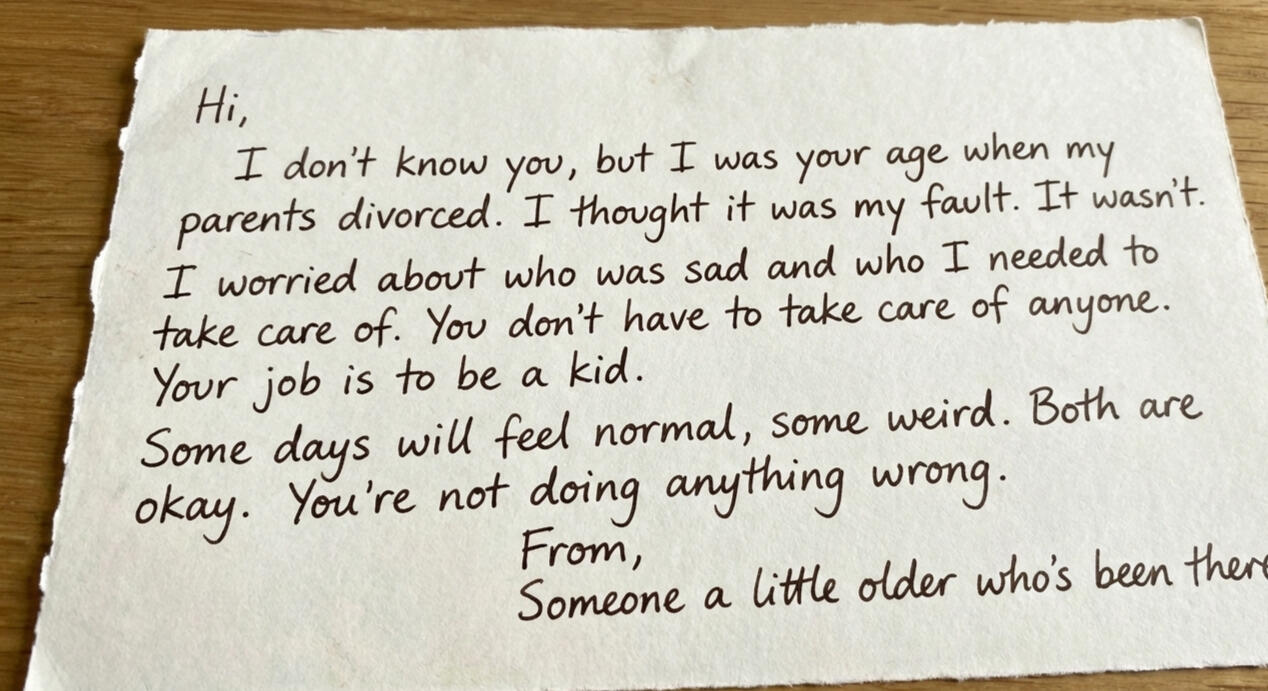 Hi,
I don't know you, but I was your age when my
parents divorced. I thought it was my fault. It wasn't.
I worried about who was sad and who I needed to
take care of. You don't have to take care of anyone.
Your job is to be a kid.
Some days will feel normal, some weird. Both are
okay. You're not doing anything wrong.
From,
Someone a little older who's been there